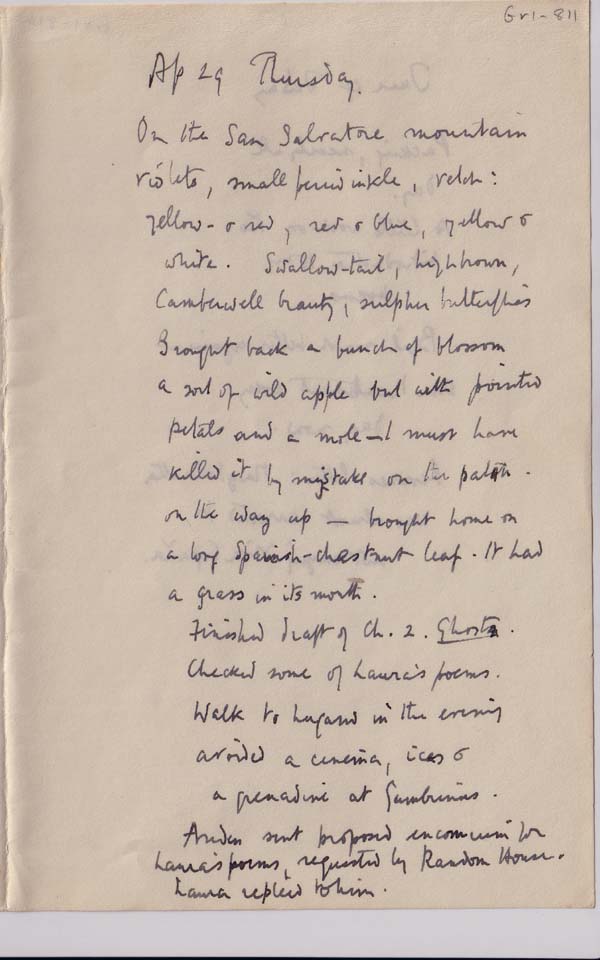 Gr1-811
Ap 29 Thursday.
On the San Salvatore mountain
violets, small periwinkle, vetch:
yellow & red, red & blue, yellow &
white. Swallow-tail, highbrown,
Camberwell beauty, sulphur butterflies
Brought back a bunch of blossom
a sort of wild apple but with pointed
petals and a mole—I must have
killed it by mistake on the path.
on the way up — brought home on
a long Spanish-chestnut leaf. It had
a grass in its mouth.
Finished draft of Ch. 2. Ghosts.
Checked some of Laura's poems.
Walk to Lugano in the evening
avoided a cinema, ices &
a grenadine at Gambrinus.
Auden sent proposed encomium for
Laura's poems, requested by Random House.
Laura replied to him.